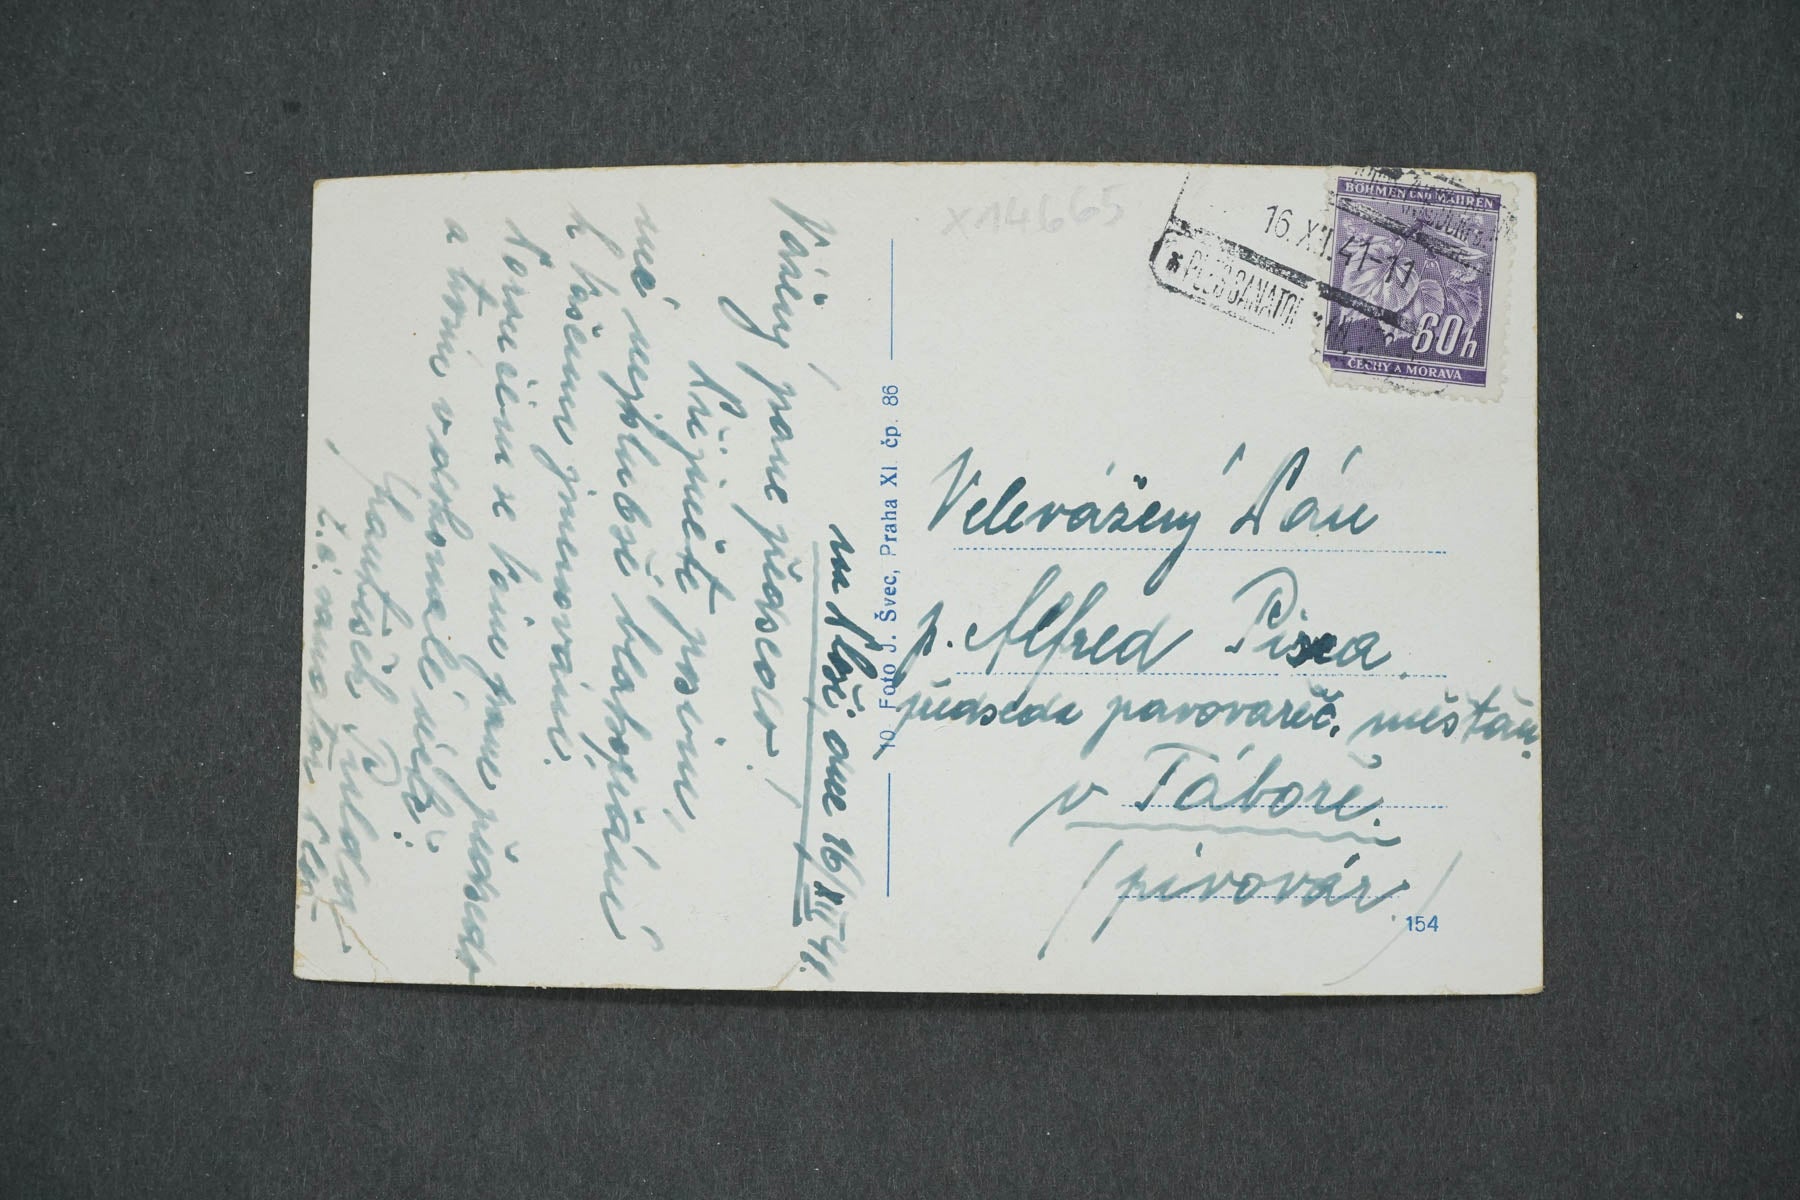 X14665
16.XII.41-11
PLEŠ SANATOR
BÖHMEN UND MÄHREN
60h
ČECHY A MORAVA
na Pleši dne 16/XII 41.
Vážený pane předsedo!
Přijměte prosím,
mé nejhlubší blahopřání
k Vašemu jmenování.
Poroučím se Vám pane předsedo
a trvám v dokonalé úctě:
t.č. sanator. Pleš
10 Foto J. Švec, Praha XI. čp. 86
Velevážený Pán
p. Alfred Pisca
předseda pravovareč. měšťan.
v Táboře.
/pivovár./
154